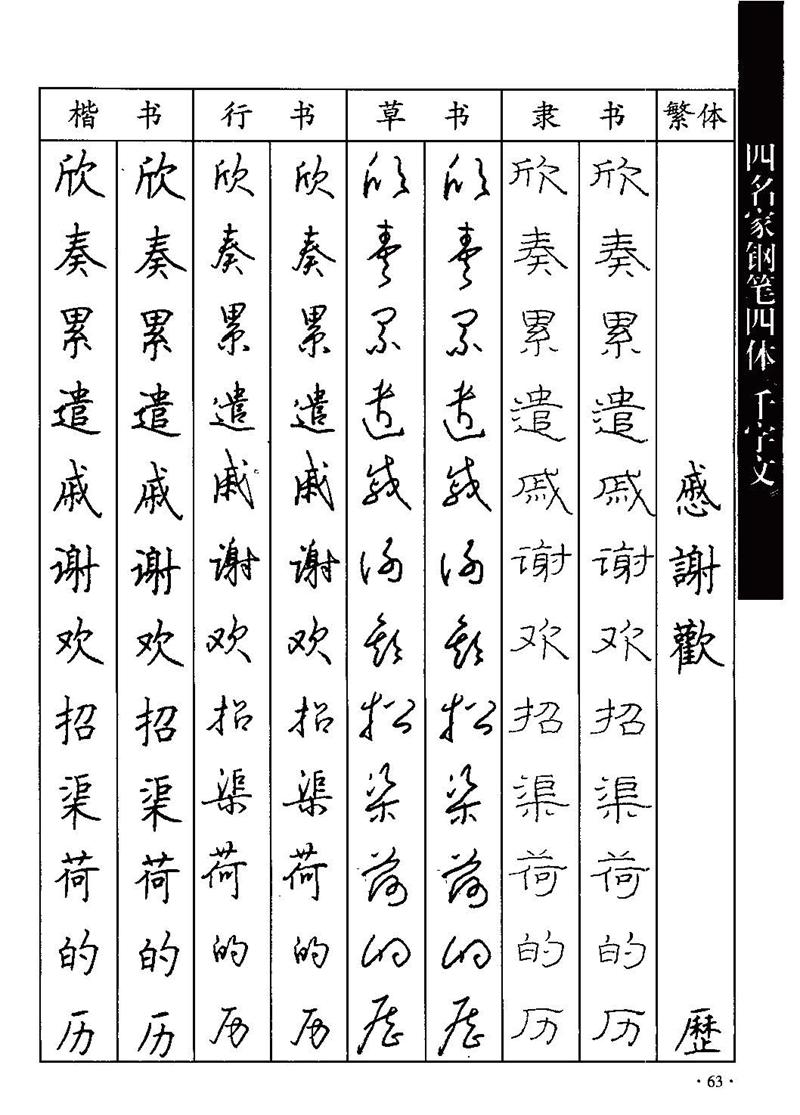 楷书 行书 草书 隶书 繁体
欣 欣 欣 欣 欣 欣 欣 欣
奏 奏 奏 奏 奏 奏 奏 奏
累 累 累 累 累 累 累 累
遣 遣 遣 遣 遣 遣 遣 遣
戚 戚 戚 戚 戚 戚 戚 戚 慼
谢 谢 谢 谢 谢 谢 谢 谢 謝
欢 欢 欢 欢 欢 欢 欢 欢 歡
招 招 招 招 招 招 招 招
渠 渠 渠 渠 渠 渠 渠 渠
荷 荷 荷 荷 荷 荷 荷 荷
的 的 的 的 的 的 的 的
历 历 历 历 历 历 历 历 歷
四名家钢笔四体千字文
·63·